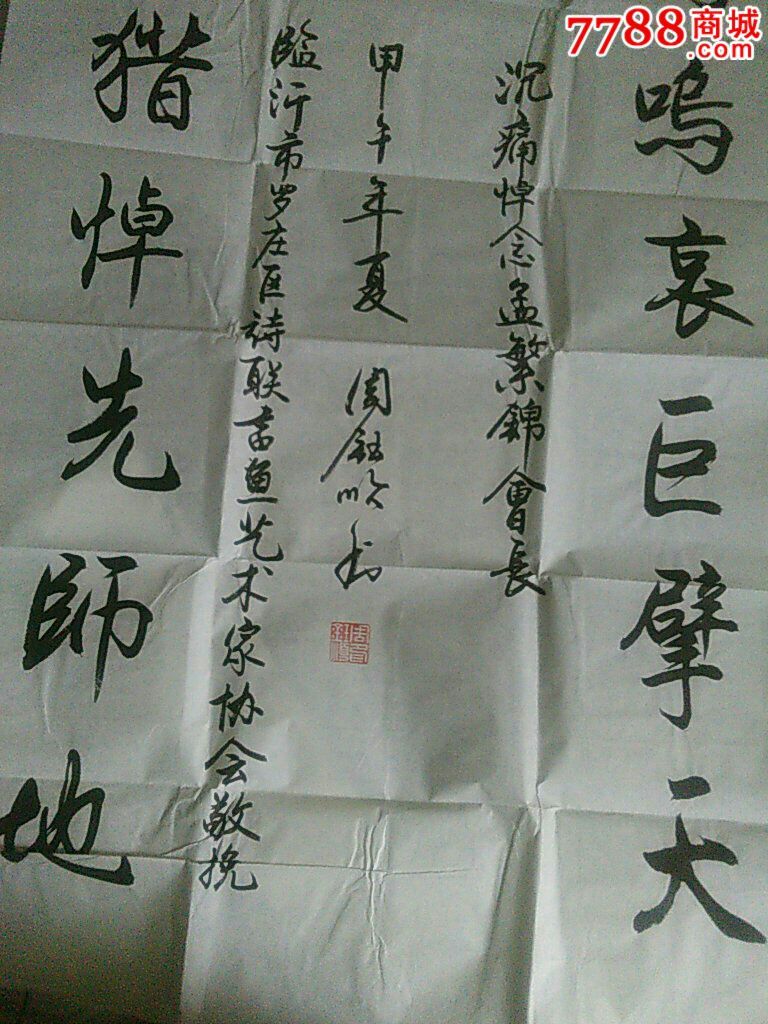 7788商城
.com
呜哀巨擘天
沉痛悼念孟繁錦會長
甲午年夏 周鈺
书
临沂市罗庄区詩联书画艺术家协会敬挽
猎悼先師地